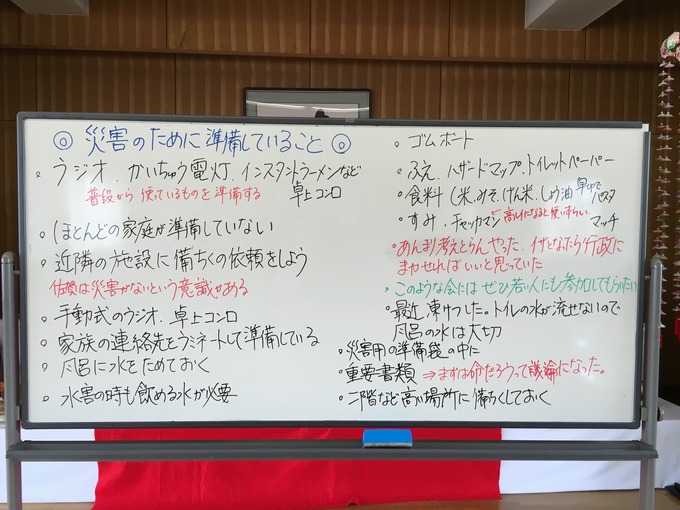 ◎ 災害のために準備していること ◎
・ラジオ、かいちゅう電灯、インスタントラーメンなど
普段から使っているものを準備する 卓上コンロ
・ほとんどの家庭が準備していない
・近隣の施設に備ちくの依頼をしよう
佐賀は災害がないという意識がある
・手動式のラジオ、卓上コンロ
・家族の連絡先をラミネートして準備している
・風呂に水をためておく
・水害の時も飲める水が必要
・ゴムボート
・ふえ、ハザードマップ、トイレットペーパー
・食料(米、みそ、げん米、しょう油 パスタ
・すみ、チャッカマン 高れいになると使いずらい マッチ
・あんまり考えとらんやった、イザとなったら行政に
まかせればいいと思っていた
このような会にはぜひ若い人にも参加してもらいたい
・最近、凍けつした。トイレの水が流せないので
風呂の水は大切
・災害用の準備袋の中に
・重要書類 ⇒まずは命だろうって議論になった。
・二階など高い場所に備ちくしておく